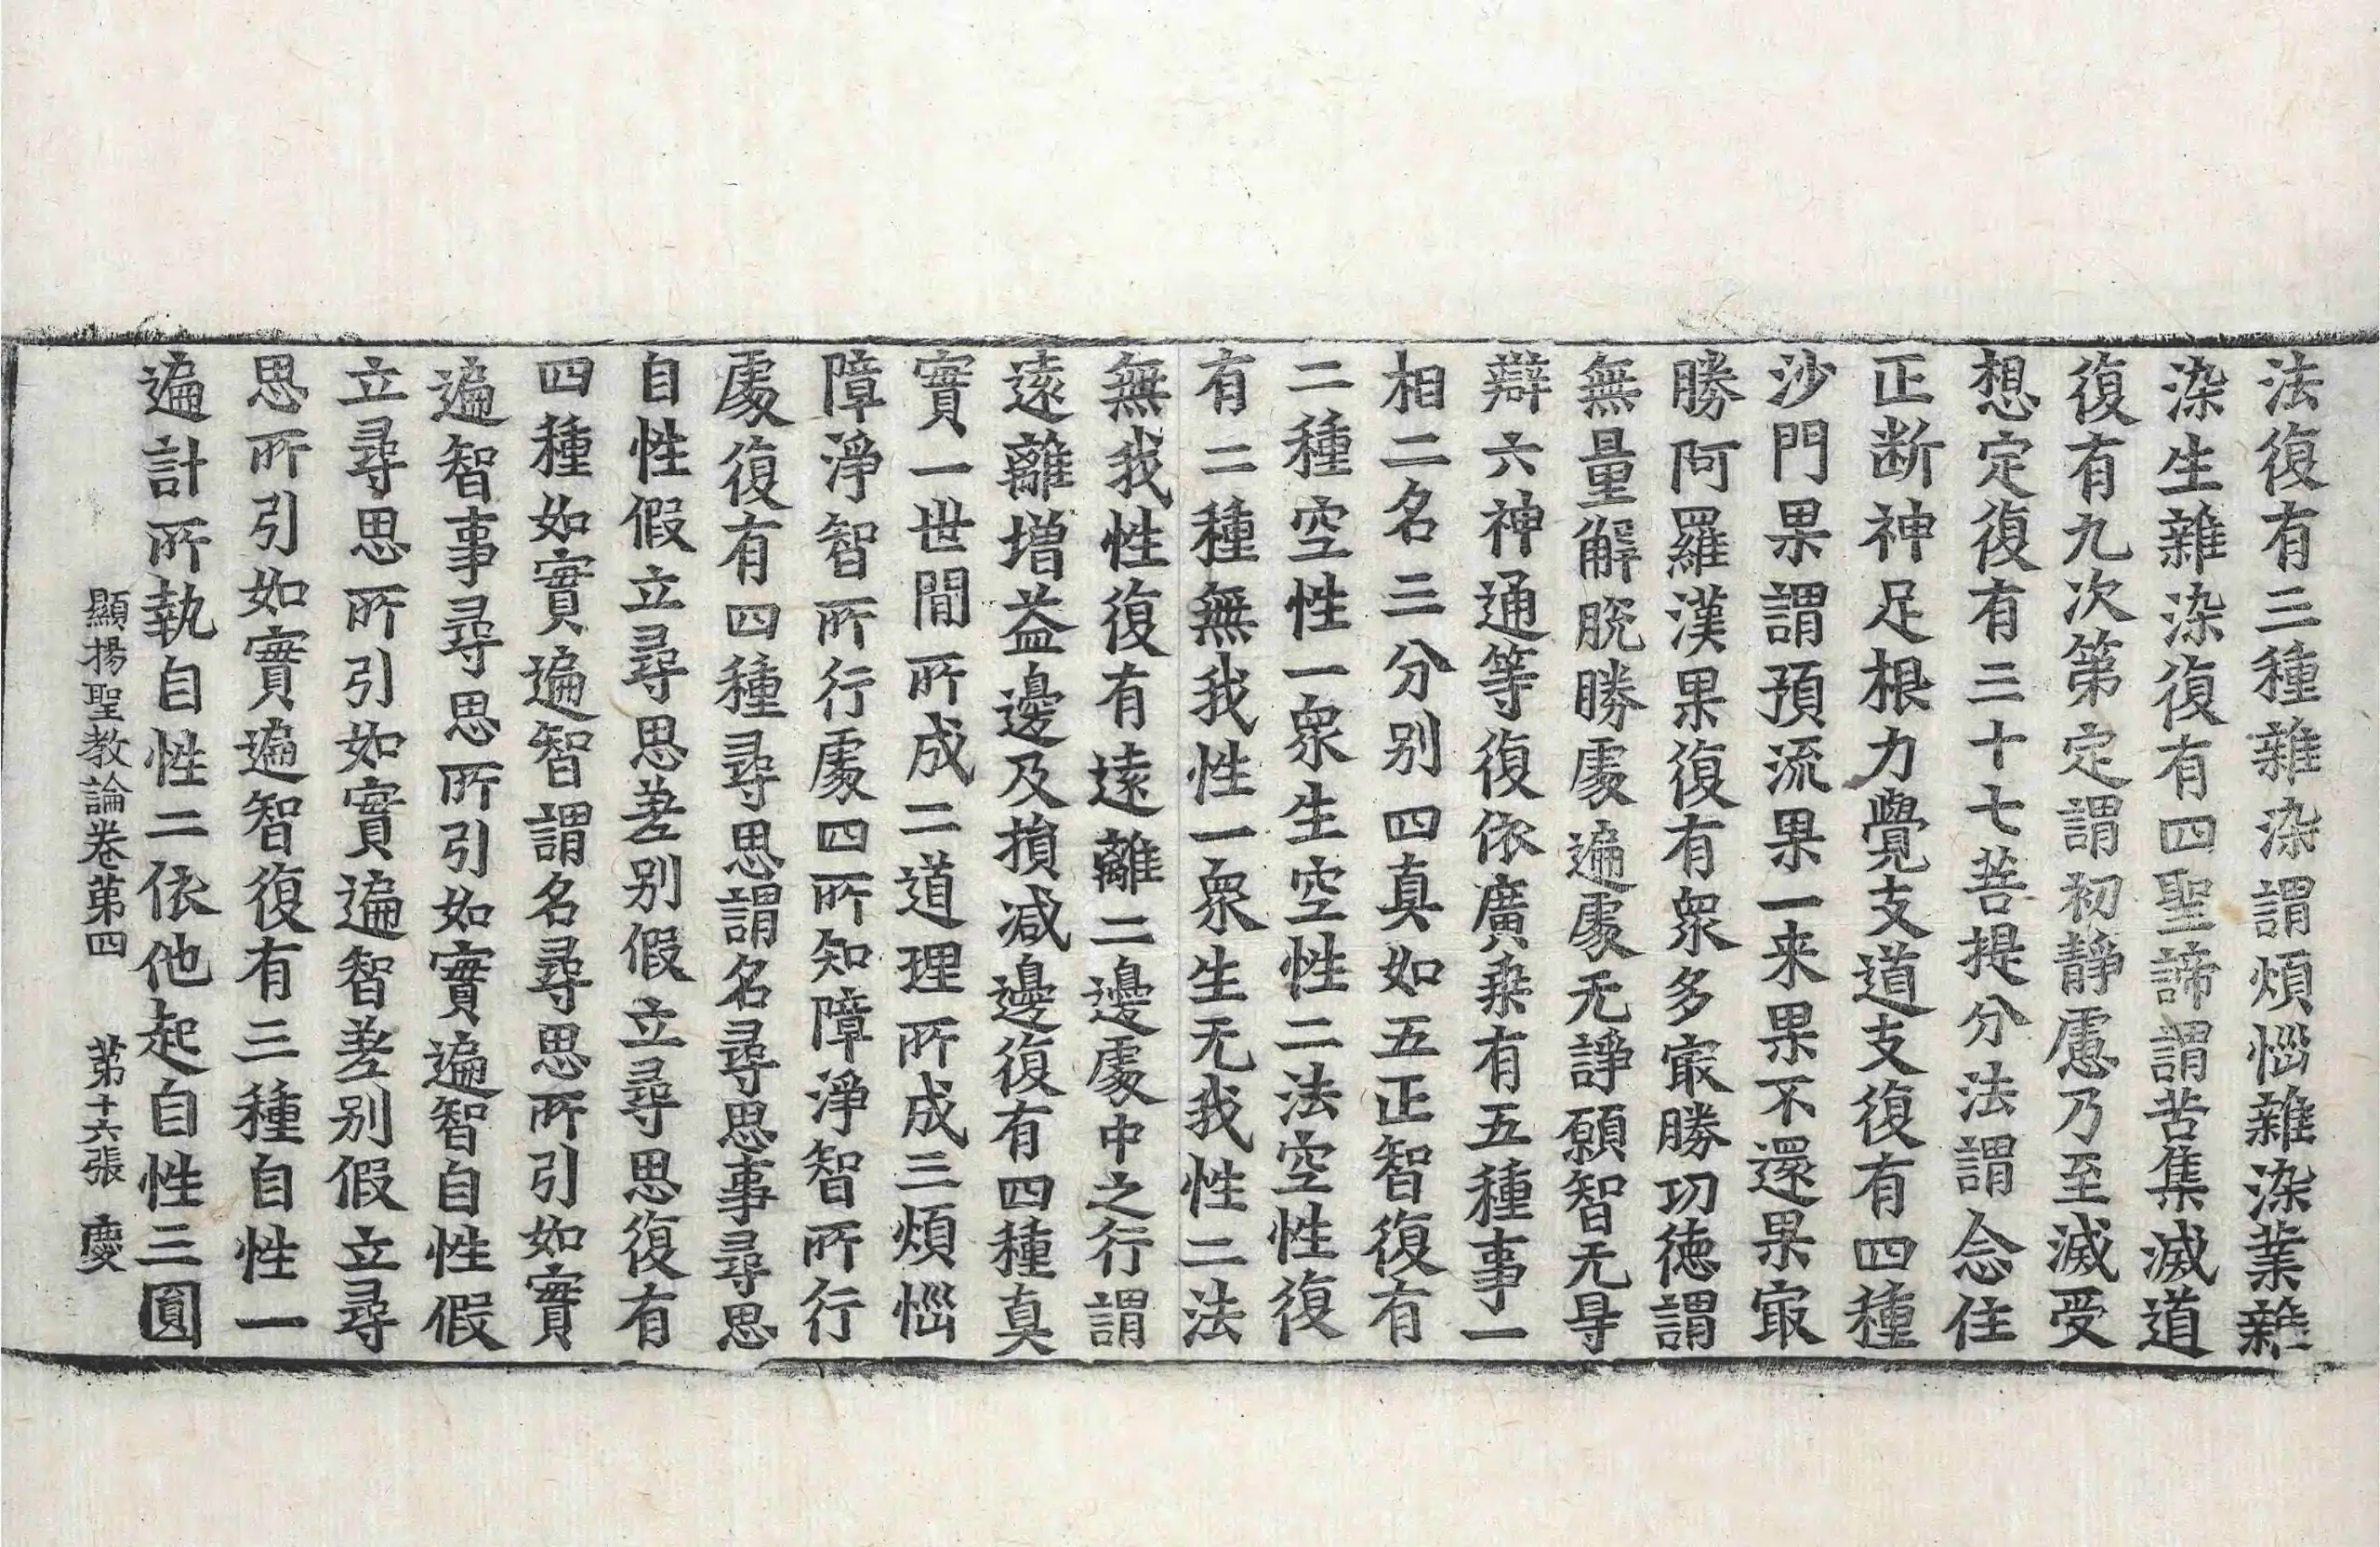 法復有三種雜染謂煩惱雜染業雜
染生雜染復有四聖諦謂苦集滅道
復有九次第定謂初靜慮乃至滅受
想定復有三十七菩提分法謂念住
正断神足根力覺支道支復有四種
沙門果謂預流果一来果不還果冣
勝阿羅漢果復有衆多冣勝功徳謂
無量解脱勝處遍處无諍願智无㝵
辯六神通等復依廣乗有五種事一
相二名三分别四真如五正智復有
二種空性一衆生空性二法空性復
有二種無我性一衆生无我性二法
無我性復有遠離二邊處中之行謂
遠離増益邊及損减邊復有四種真
實一世間所成二道理所成三煩惱
障淨智所行處四所知障淨智所行
處復有四種尋思謂名尋思事尋思
自性假立尋思差别假立尋思復有
四種如實遍智謂名尋思所引如實
遍智事尋思所引如實遍智自性假
立尋思所引如實遍智差别假立尋
思所引如實遍智復有三種自性一
遍計所執自性二依他起自性三圓
顯揚聖教論卷第四 第十六張 慶